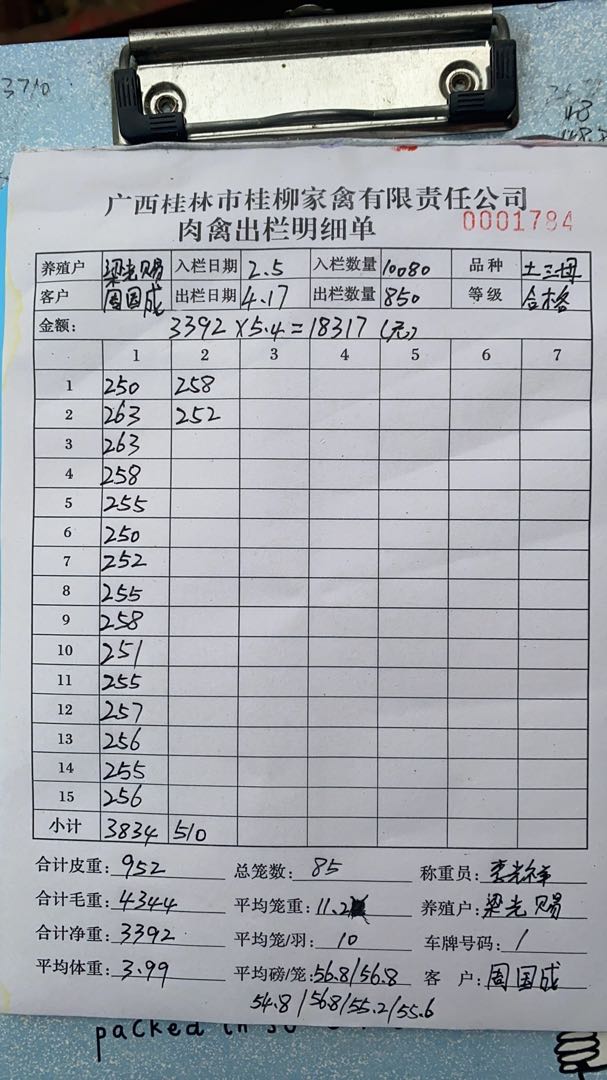 3710
48
广西桂林市桂柳家禽有限责任公司
肉禽出栏明细单 0001784
养殖户 梁光赐 入栏日期 2.5 入栏数量 10080 品种 土三母
客户 周国成 出栏日期 4.17 出栏数量 850 等级 合格
金额: 3392×5.4=18317(元)
1 2 3 4 5 6 7
1 250 258
2 263 252
3 263
4 258
5 255
6 250
7 252
8 255
9 258
10 251
11 255
12 257
13 256
14 255
15 256
小计 3834 510
合计皮重: 952 总笼数: 85 称重员: 李光祥
合计毛重: 4344 平均笼重: 11.2 养殖户: 梁光赐
合计净重: 3392 平均笼/羽: 10 车牌号码: /
平均体重: 3.99 平均磅/笼: 56.8/56.8 客户: 周国成
54.8/56.8/55.2/55.6
packed in